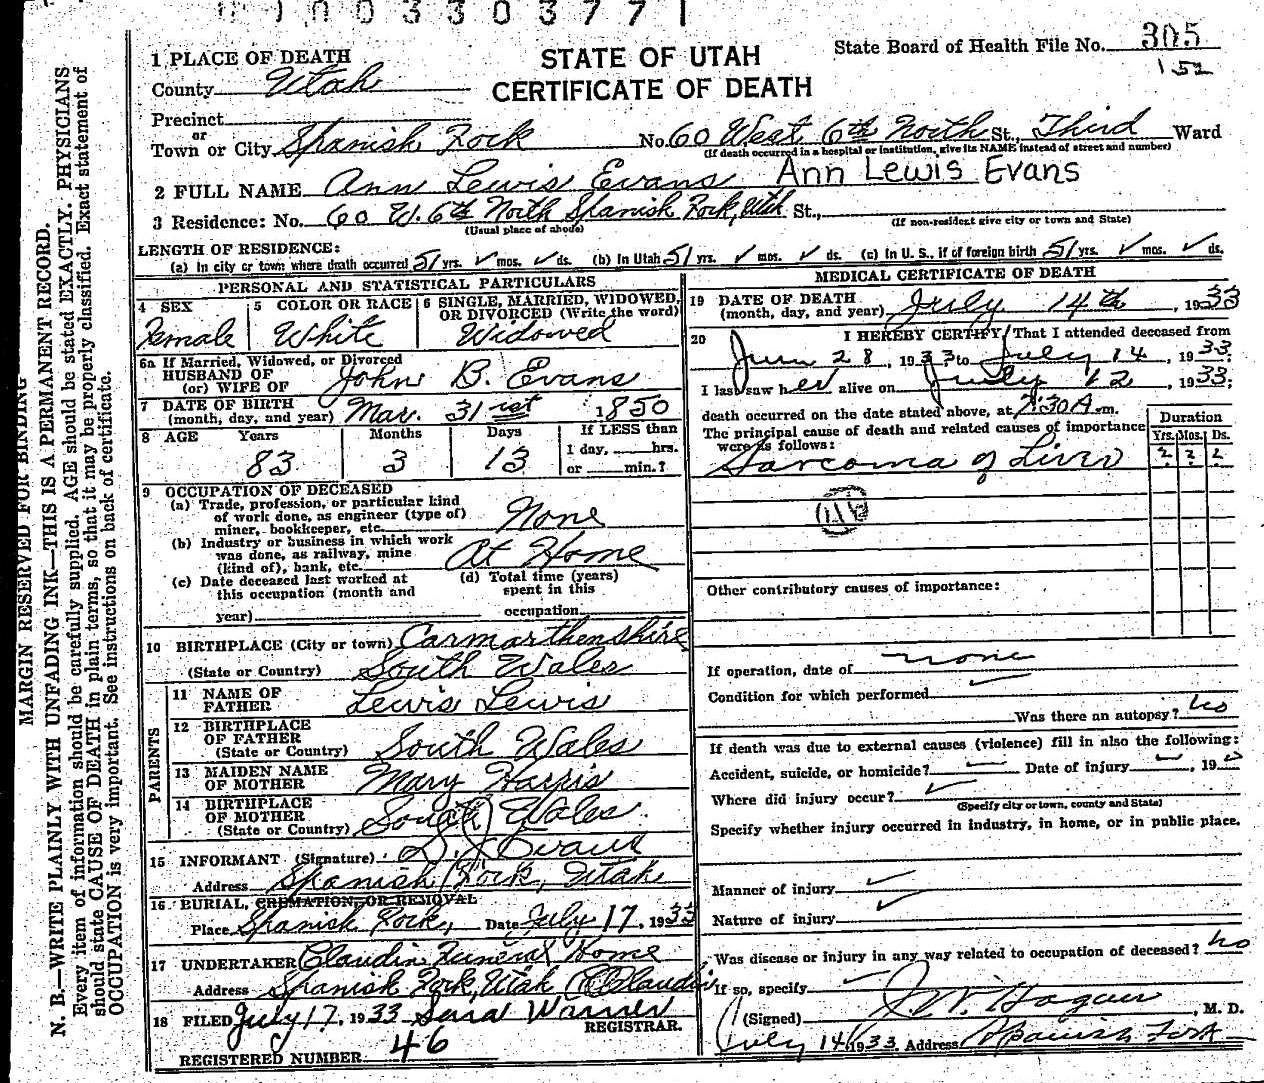 1003303771
STATE OF UTAH
CERTIFICATE OF DEATH
State Board of Health File No. 305
152
1 PLACE OF DEATH
County Utah
Precinct
or
Town or City Spanish Fork No. 60 West 6th North St., Third Ward
(If death occurred in a hospital or institution, give its NAME instead of street and number)
2 FULL NAME Ann Lewis Evans Ann Lewis Evans
3 Residence: No. 60 W. 6th North Spanish Fork, Utah St.,
(Usual place of abode) (If non-resident give city or town and State)
LENGTH OF RESIDENCE:
(a) In city or town where death occurred 51 yrs. ✓ mos. ✓ ds. (b) In Utah 51 yrs. ✓ mos. ✓ ds. (c) In U. S., if of foreign birth 51 yrs. ✓ mos. ✓ ds.
PERSONAL AND STATISTICAL PARTICULARS
4 SEX
Female
5 COLOR OR RACE
White
6 SINGLE, MARRIED, WIDOWED, OR DIVORCED (Write the word)
Widowed
6a If Married, Widowed, or Divorced
HUSBAND OF
(or) WIFE OF John B. Evans
7 DATE OF BIRTH
(month, day, and year) Mar. 31st 1850
8 AGE Years Months Days If LESS than
1 day, hrs.
83 3 13 or min.?
9 OCCUPATION OF DECEASED
(a) Trade, profession, or particular kind
of work done, as engineer (type of)
miner, bookkeeper, etc. None
(b) Industry or business in which work
was done, as railway, mine
(kind of), bank, etc. At Home
(c) Date deceased last worked at
this occupation (month and
year)
(d) Total time (years)
spent in this
occupation
10 BIRTHPLACE (City or town) Carmarthenshire
(State or Country) South Wales
PARENTS
11 NAME OF
FATHER Lewis Lewis
12 BIRTHPLACE
OF FATHER
(State or Country) South Wales
13 MAIDEN NAME
OF MOTHER Mary Harris
14 BIRTHPLACE
OF MOTHER
(State or Country) South Wales
15 INFORMANT (Signature) D. J. Evans
Address Spanish Fork, Utah
16 BURIAL, CREMATION, OR REMOVAL
Place Spanish Fork, Date July 17, 1933
17 UNDERTAKER Claudin Funeral Home
Address Spanish Fork, Utah C Claudin
18 FILED July 17, 1933 Sena Warner
REGISTRAR.
REGISTERED NUMBER 46
MEDICAL CERTIFICATE OF DEATH
19 DATE OF DEATH
(month, day, and year) July 14th, 1933
20 I HEREBY CERTIFY, That I attended deceased from
June 28, 1933, to July 14, 1933:
I last saw her alive on July 12, 1933;
death occurred on the date stated above, at 7:30 A. m.
The principal cause of death and related causes of importance
were as follows:
Sarcoma of Liver
Duration
Yrs. Mos. Ds.
? ? ?
Other contributory causes of importance:
If operation, date of none
Condition for which performed ✓
Was there an autopsy? no
If death was due to external causes (violence) fill in also the following:
Accident, suicide, or homicide? Date of injury , 19
Where did injury occur? ✓
(Specify city or town, county and State)
Specify whether injury occurred in industry, in home, or in public place.
Manner of injury ✓
Nature of injury ✓
Was disease or injury in any way related to occupation of deceased? no
If so, specify
(Signed) J W. Hagan, M. D.
July 14 1933 Address Spanish Fork
MARGIN RESERVED FOR BINDING
N. B.—WRITE PLAINLY WITH UNFADING INK—THIS IS A PERMANENT RECORD.
Every item of information should be carefully supplied. AGE should be stated EXACTLY. PHYSICIANS
should state CAUSE OF DEATH in plain terms, so that it may be properly classified. Exact statement of
OCCUPATION is very important. See instructions on back of certificate.